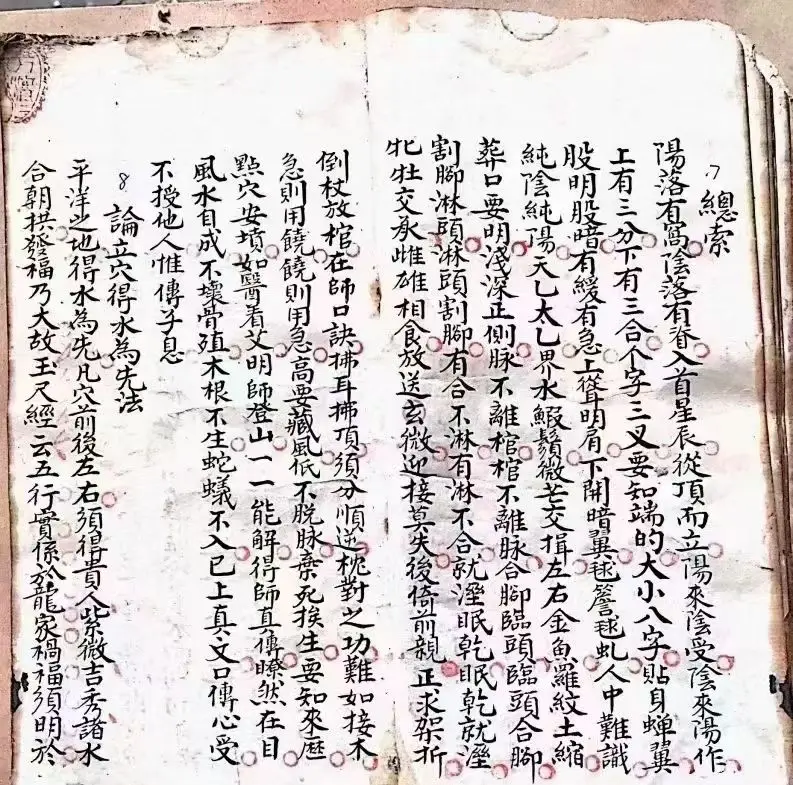 7 總索
陽落有窩陰落有脊入首星辰從頂而立陽來陰受陰來陽作
上有三分下有三合个字三叉要知端的大小八字貼身蟬翼
股明股暗有緩有急上聳明肩下開暗翼毬簷毬虬人中難識
純陰純陽天乙太乙界水鰕鬚微芒交揖左右金魚羅紋土縮
葬口要明淺深正側脉不離棺棺不離脉合腳臨頭臨頭合腳
割腳淋頭淋頭割腳有合不淋有淋不合就溼眠乾眠乾就溼
牝牡交承雌雄相食放送玄微迎接莫失後倚前親正求架折
倒杖放棺在師口訣拂耳拂頂須分順逆枕對之功難如接木
急則用饒饒則用急高要藏風低不脫脉棄死挨生要知來歷
點穴安墳如醫看艾明師登山一一能解得師真傳瞭然在目
風水自成不壞骨殖木根不生蛇蟻不入已上真文口傳心受
不授他人惟傳子息
8 論立穴得水為先法
平洋之地得水為先凡穴前後左右須得貴人紫微吉秀諸水
合朝拱發福乃大故玉尺經云五行實係於龍家禍福須明於